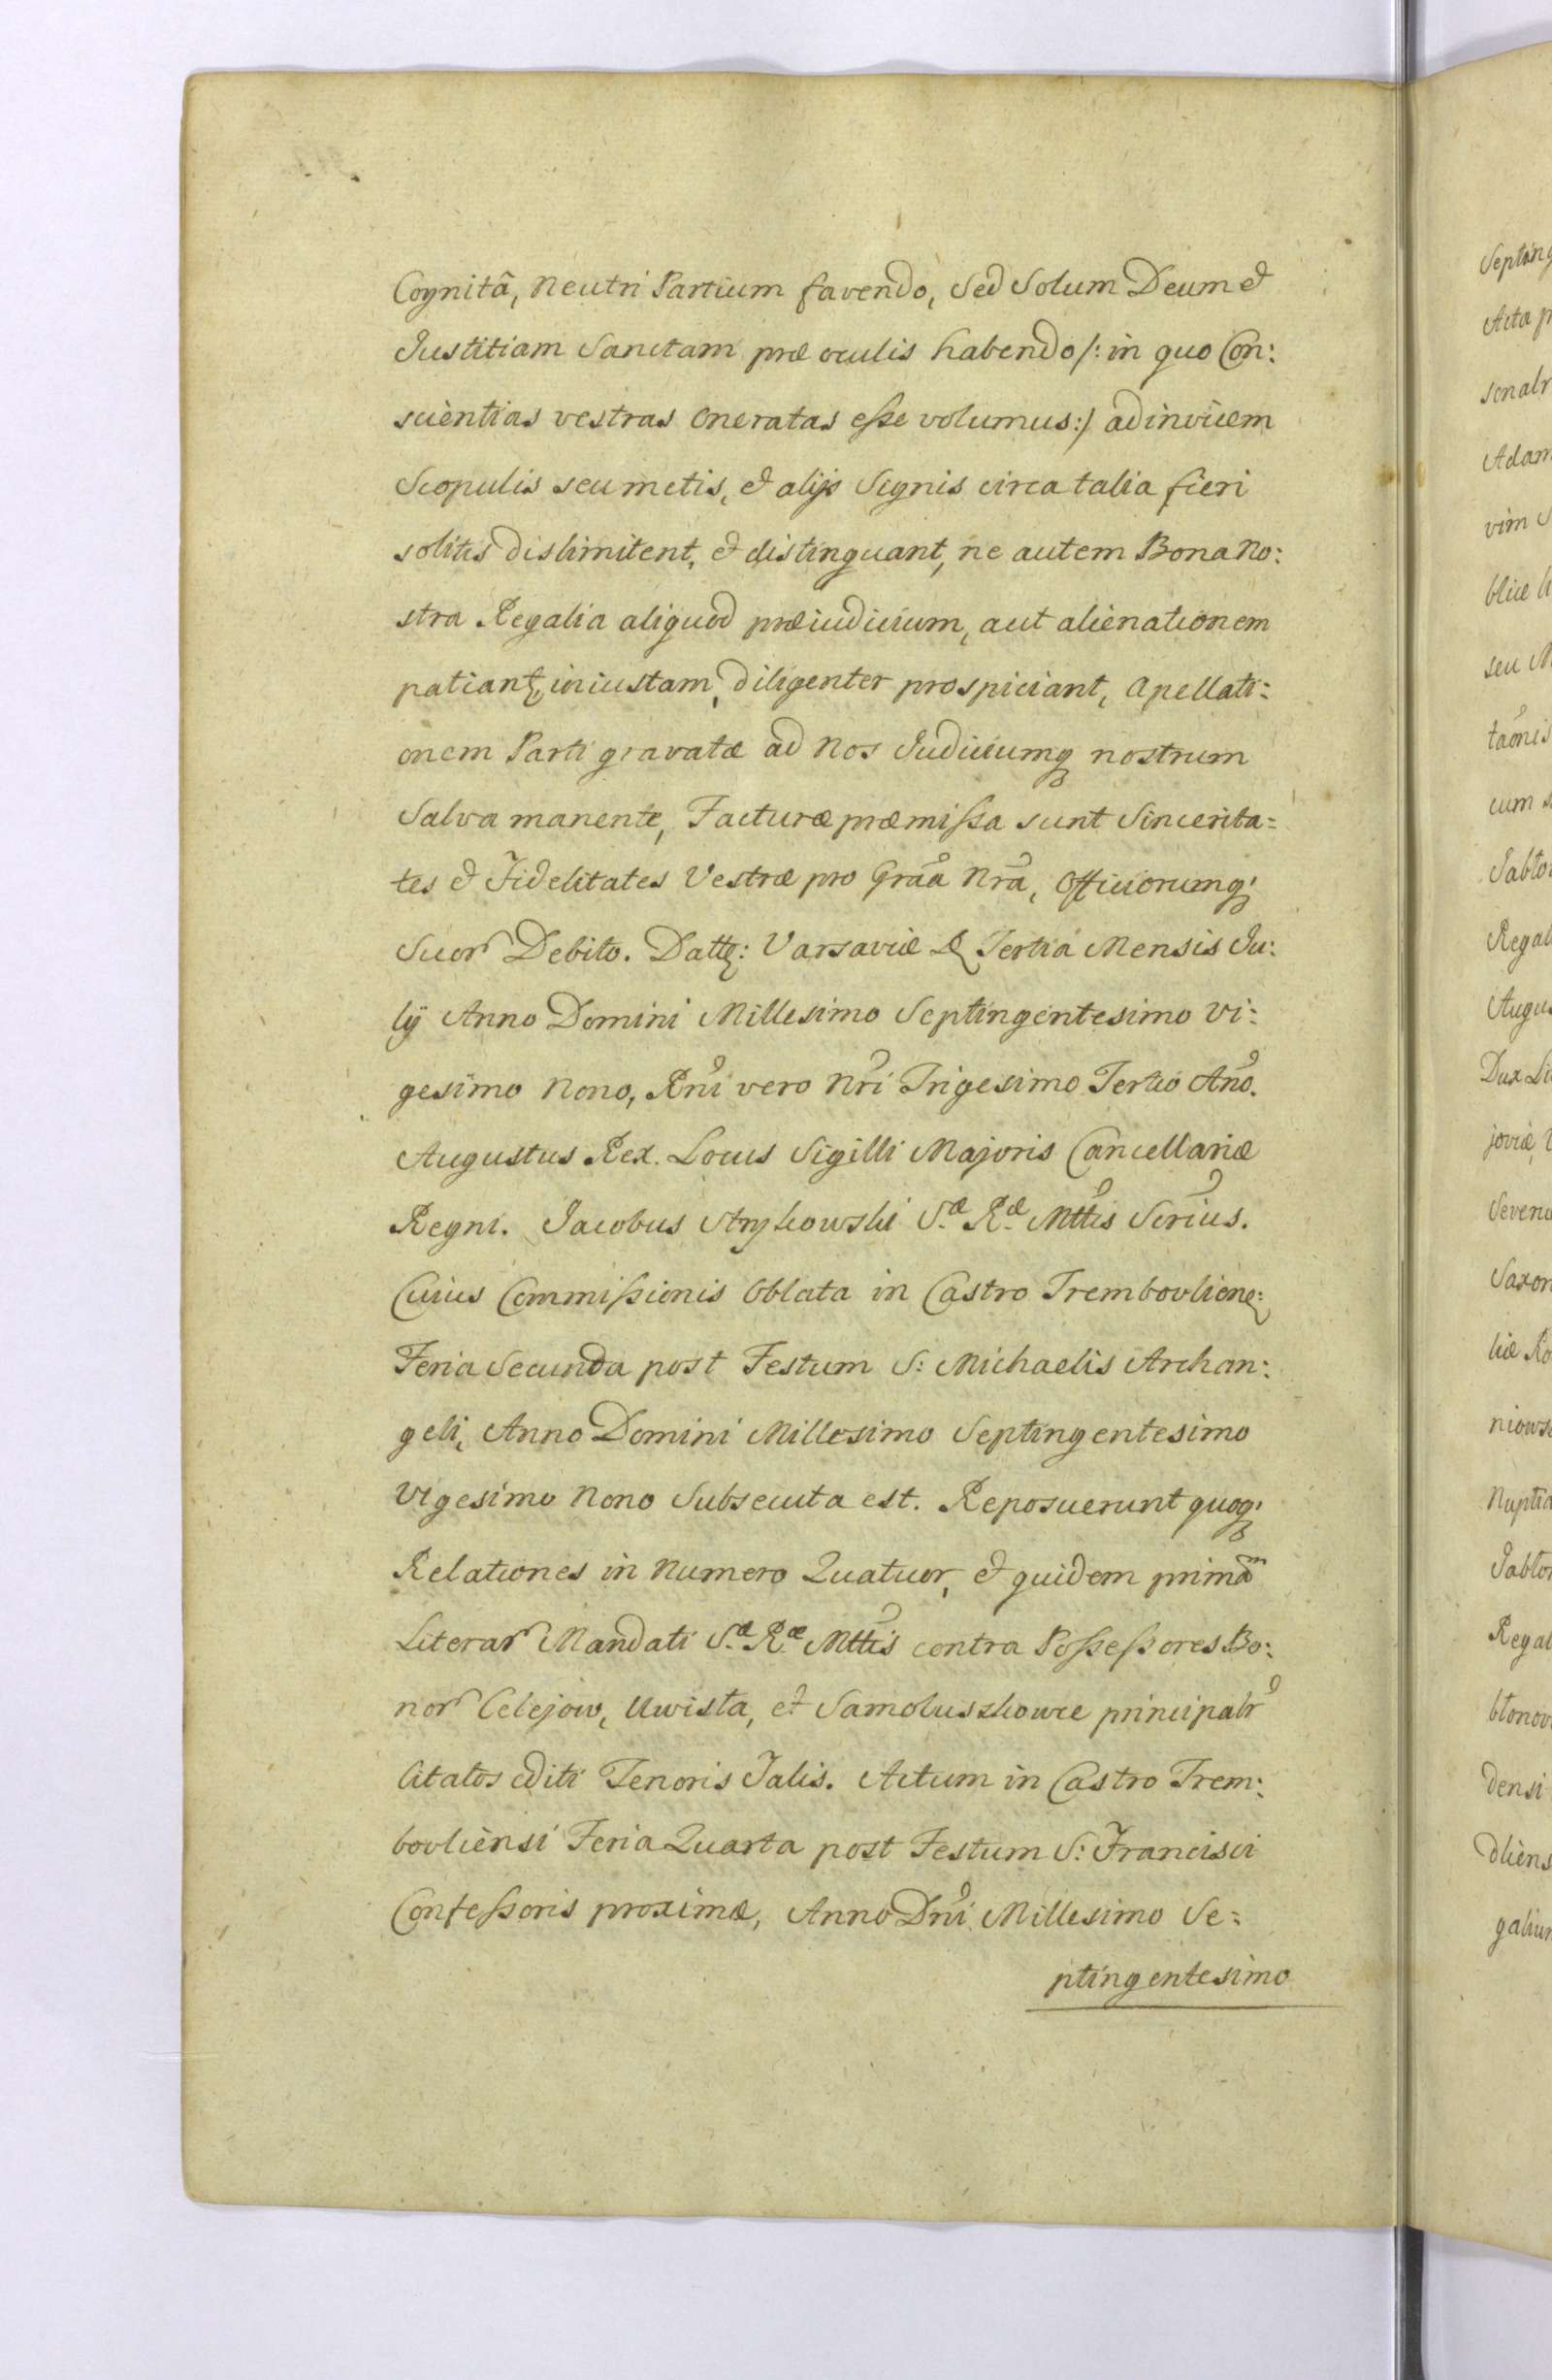 Cognitâ, neutri Partium favendo, Sed Solum Deum &
Justitiam Sanctam præ oculis habendo /: in quo Con:
scientias vestras oneratas eſse volumus :/ ad invicem
Scopulis seu metis, & alijs Signis circa talia fieri
solitis dislimitent, & distinguant, ne autem Bona No:
stra Regalia aliquod præiudicium, aut alienationem
patiant, iniustam, diligenter prospiciant, Apellati:
onem Parti gravatæ ad Nos Judiciumq nostrum
Salva manente, Facturæ præmiſsa sunt Sincerita=
tes & Fidelitates Vestræ pro Grãa Nrã, Officiorumq
Suor Debito. Datt: Varsaviæ D Tertia Mensis Ju:
lij Anno Domini Millesimo Septingentesimo Vi:
gesimo Nono, Rñi vero Nrĩ Trigesimo Tertio Año.
Augustus Rex. Locus Sigilli Majoris Cancellariæ
Regni. Jacobus Strykowski S.æ R.æ Mttis Scrius.
Cuius Commiſsionis Oblata in Castro Trembovliens:
Feria Secunda post Festum S: Michaelis Archan:
geli, Anno Domini Millesimo Septingentesimo
Vigesimo Nono Subsecuta est. Reposuerunt quoq
Relationes in Numero Quatuor, & quidem primam
Literar Mandati S.æ R.æ Mttis contra Poſseſsores Bo:
nor Celejow, Uwisła, et Samoluszkowce principalr
Citatos editi Tenoris Talis. Actum in Castro Trem:
bovliensi Feria Quarta post Festum S: Francisci
Confeſsoris proximæ, Anno Dñi Millesimo Se:
ptingentesimo
Septing
Acta p
sonalr
Adam
vim S
blice
seu M
taõnis
cum
Jabło
Regal
Augus
Dux Li
joviæ,
Severi
Saxon
liæ Ro
niows
Nuptia
Jabło
Regal
błonov
densi
dliens
galiu